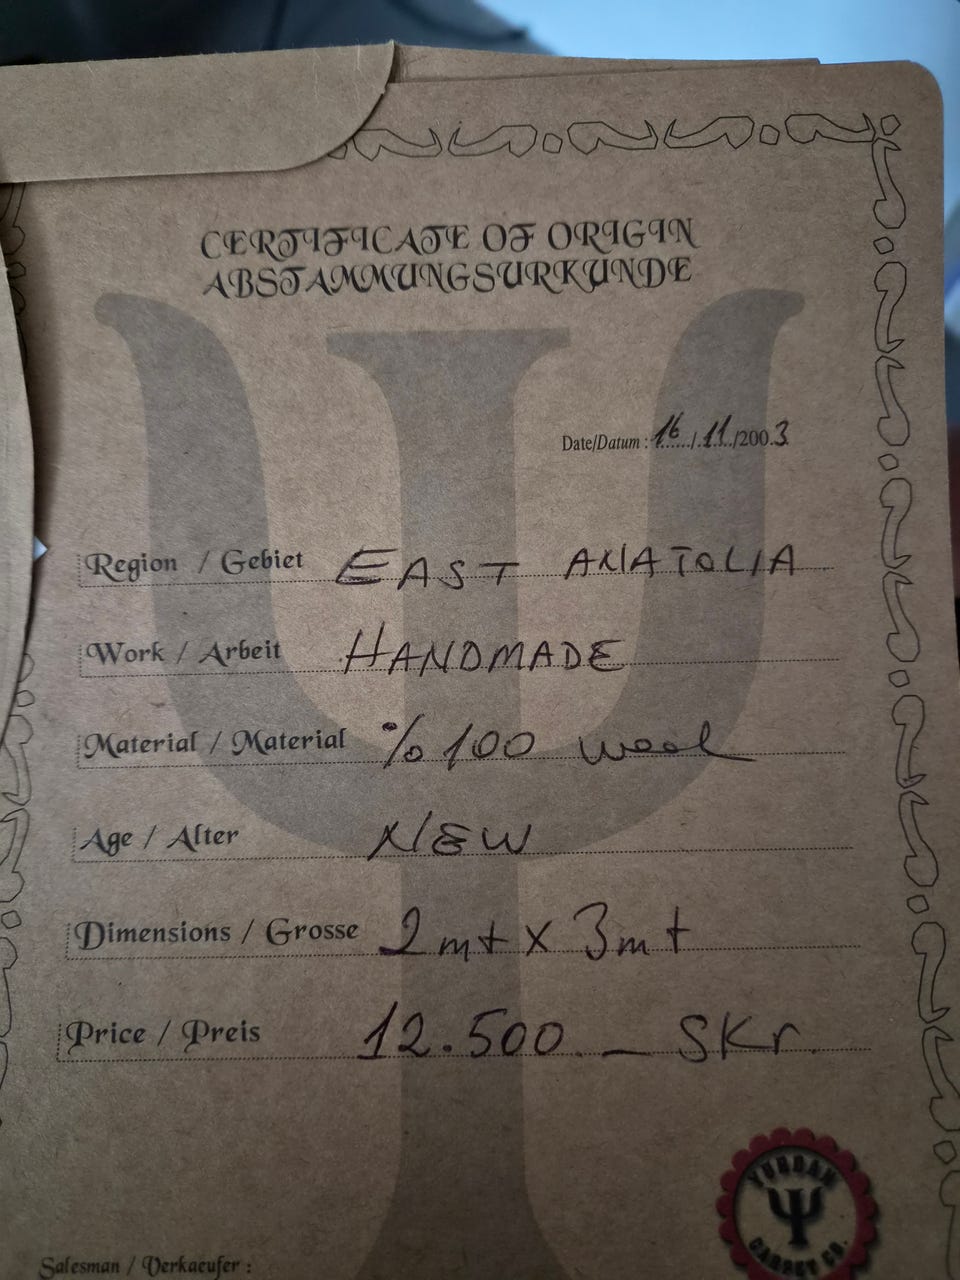 CERTIFICATE OF ORIGIN
ABSTAMMUNGSURKUNDE
Date/Datum : 16 / 11 /2003
Region / Gebiet EAST ANATOLIA
Work / Arbeit HANDMADE
Material / Material %100 wool
Age / Alter NEW
Dimensions / Grosse 2mt x 3mt
Price / Preis 12.500._ SKr.
YURDAN
CARPET CO.
Salesman / Verkaeufer :